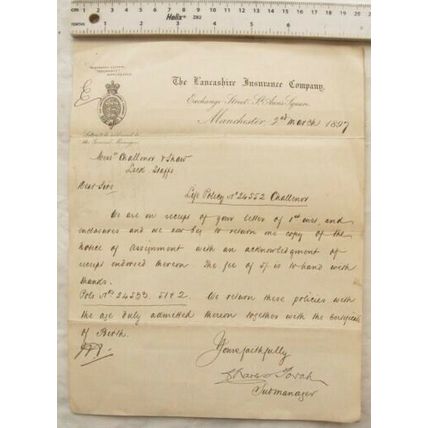 Helix 292
The Lancashire Insurance Company,
Exchange Street, St. Anns Square,
Manchester, 2nd March 1897
Messrs Challinor & Shaw
Leek Staffs
Dear Sirs
Life Policy No 24552 Challinor
We are in receipt of your letter of 1st inst. and
enclosures and we now beg to return one copy of the
notice of Assignment with an acknowledgment of
receipt endorsed thereon. The fee of 5/- is to hand with
thanks.
Pols Nos 24553. 51 & 2. We return these policies with
the age duly admitted thereon together with the
of Birth.
Yours faithfully
Submanager